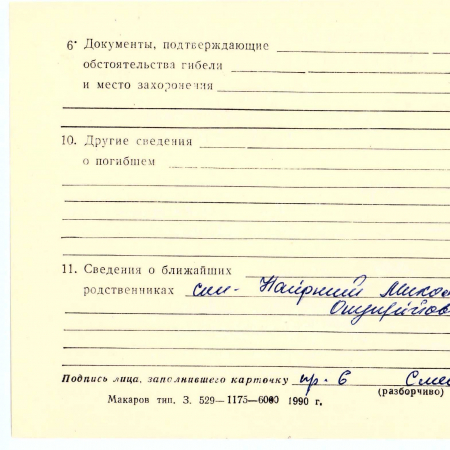 6. Документы, подтверждающие
обстоятельства гибели
и место захоронения
10. Другие сведения
о погибшем
11. Сведения о ближайших
родственниках син -
Подпись лица, заполнившего карточку пр. 6
(разборчиво)
Макаров тип. З. 529—1175—6000 1990 г.